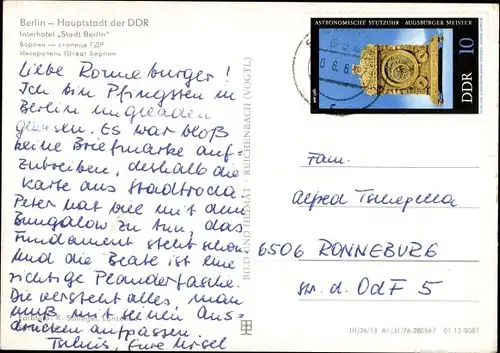 Berlin — Hauptstadt der DDR
Interhotel „Stadt Berlin“
Берлин — столица ГДР
Интеротель Штадт Берлин
Liebe Ronneburger!
Ich bin Pfingsten in
Berlin
gewesen. Es war bloß
keine Briefmarke auf-
zutreiben, deshalb die
Karte aus Stadtroda.
Peter hat viel mit dem
Bungalow zu tun, das
Fundament steht schon
und die Beate ist eine
richtige Plaudertasche.
Die versteht alles, man
muß mit seinen Aus-
drücken aufpassen.
Tschüs, Eure Ursel
BILD UND HEIMAT REICHENBACH (VOGTL)
ASTRONOMISCHE STUTZUHR · AUGSBURGER MEISTER
DDR 10
Fam.
Alfred
6506 RONNEBURG
Str. d. OdF 5
III/26/13 A1 (31/76-280567 01 15 0087